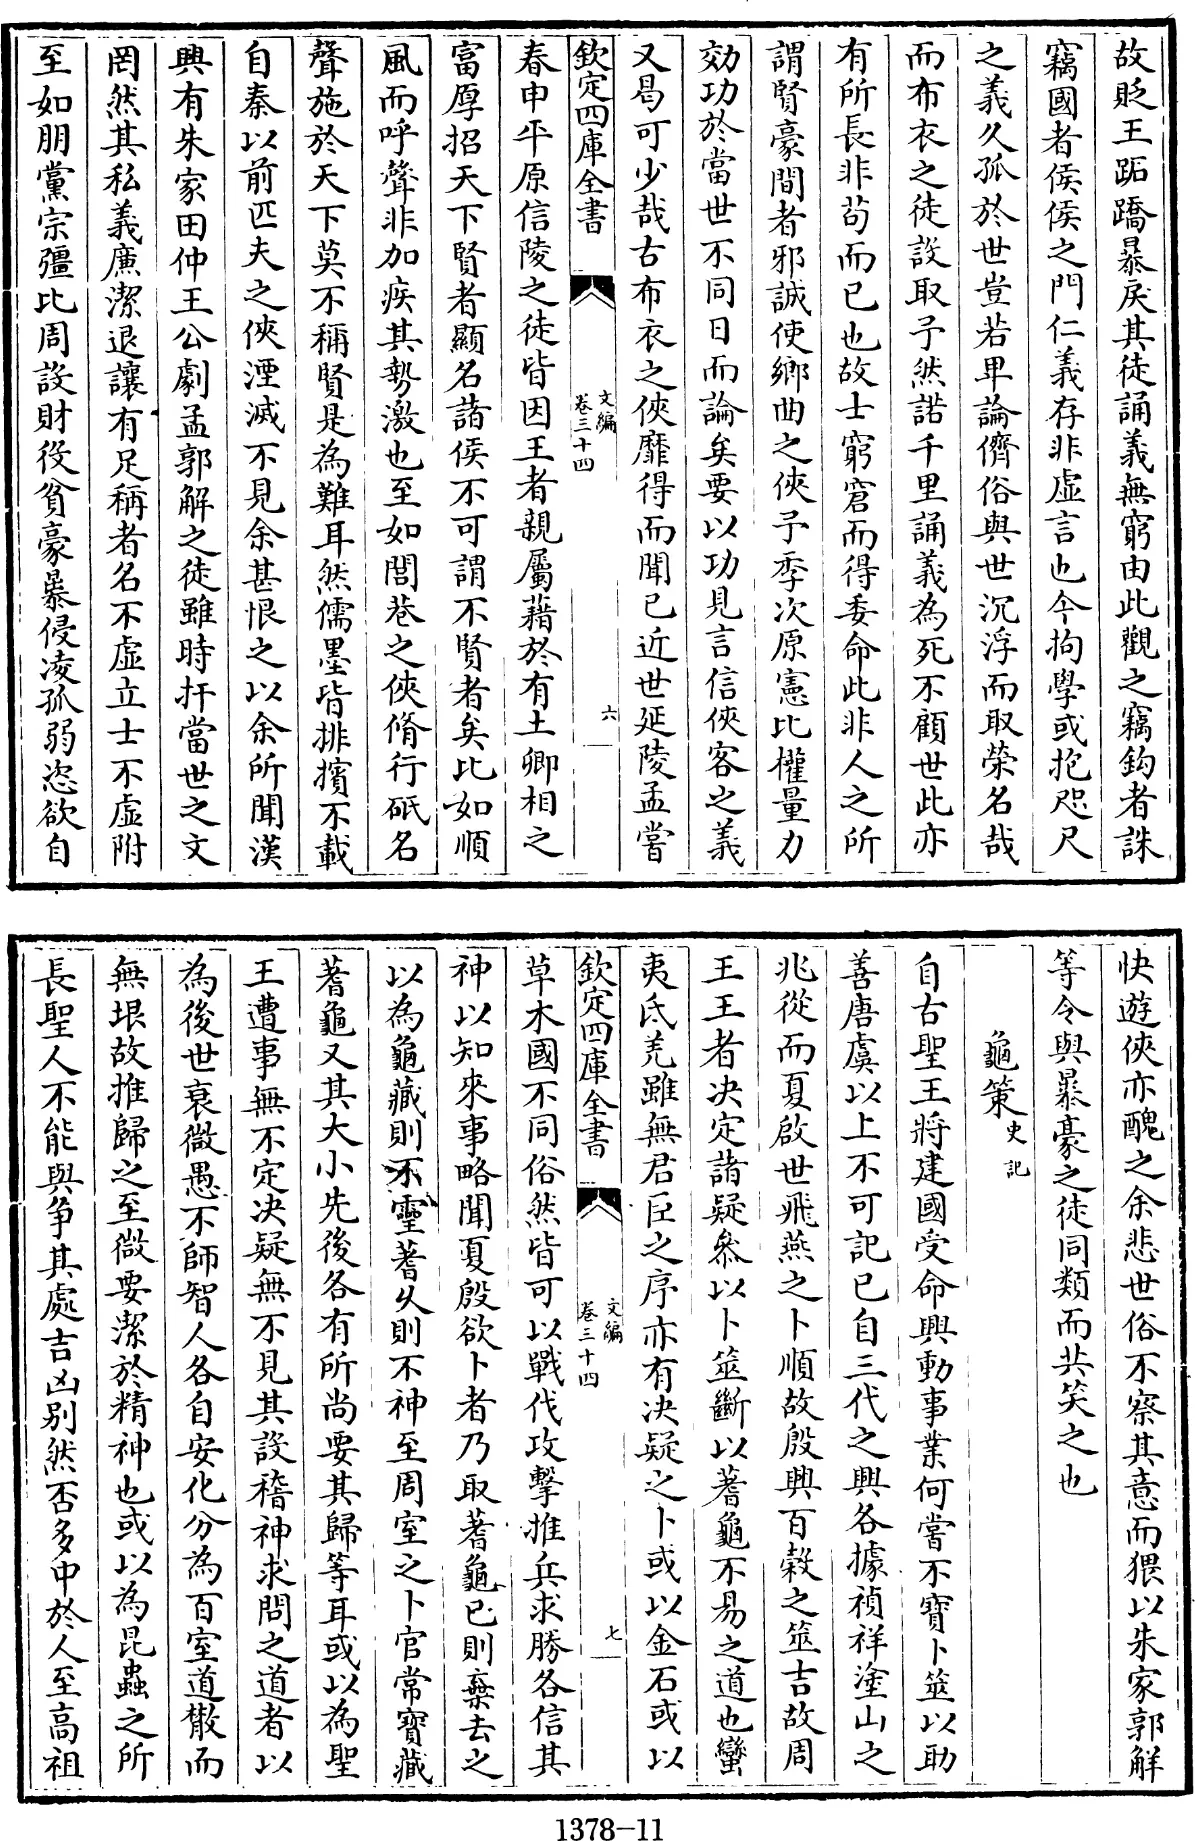 故貶王跖蹻暴戾其徒誦義無窮由此觀之竊鈎者誅
竊國者侯侯之門仁義存非虛言也今拘學或抱咫尺
之義久孤於世豈若卑論儕俗與世沉浮而取榮名哉
而布衣之徒設取予然諾千里誦義為死不顧世此亦
有所長非苟而已也故士窮窘而得委命此非人之所
謂賢豪間者邪誠使鄉曲之俠予季次原憲比權量力
効功於當世不同日而論矣要以功見言信俠客之義
又曷可少哉古布衣之俠靡得而聞已近世延陵孟嘗
欽定四庫全書
文編
卷三十四
六
春申平原信陵之徒皆因王者親屬藉於有土卿相之
富厚招天下賢者顯名諸侯不可謂不賢者矣比如順
風而呼聲非加疾其勢激也至如閭巷之俠脩行砥名
聲施於天下莫不稱賢是為難耳然儒墨皆排擯不載
自秦以前匹夫之俠湮滅不見余甚恨之以余所聞漢
興有朱家田仲王公劇孟郭解之徒雖時扞當世之文
罔然其私義廉潔退讓有足稱者名不虛立士不虛附
至如朋黨宗彊比周設財役貧豪暴侵凌孤弱恣欲自
快遊俠亦醜之余悲世俗不察其意而猥以朱家郭解
等令與暴豪之徒同類而共笑之也
龜策史記
自古聖王將建國受命興動事業何嘗不寶卜筮以助
善唐虞以上不可記已自三代之興各據禎祥塗山之
兆從而夏啟世飛燕之卜順故殷興百穀之筮吉故周
王王者决定諸疑叅以卜筮斷以蓍龜不易之道也蠻
夷氐羌雖無君臣之序亦有决疑之卜或以金石或以
欽定四庫全書
文編
卷三十四
七
草木國不同俗然皆可以戰伐攻擊推兵求勝各信其
神以知來事略聞夏殷欲卜者乃取蓍龜已則棄去之
以為龜藏則不靈蓍乆則不神至周室之卜官常寶藏
蓍龜又其大小先後各有所尚要其歸等耳或以為聖
王遭事無不定决疑無不見其設稽神求問之道者以
為後世衰微愚不師智人各自安化分為百室道散而
無垠故推歸之至微要潔於精神也或以為昆蟲之所
長聖人不能與爭其處吉凶别然否多中於人至高祖
1378-11